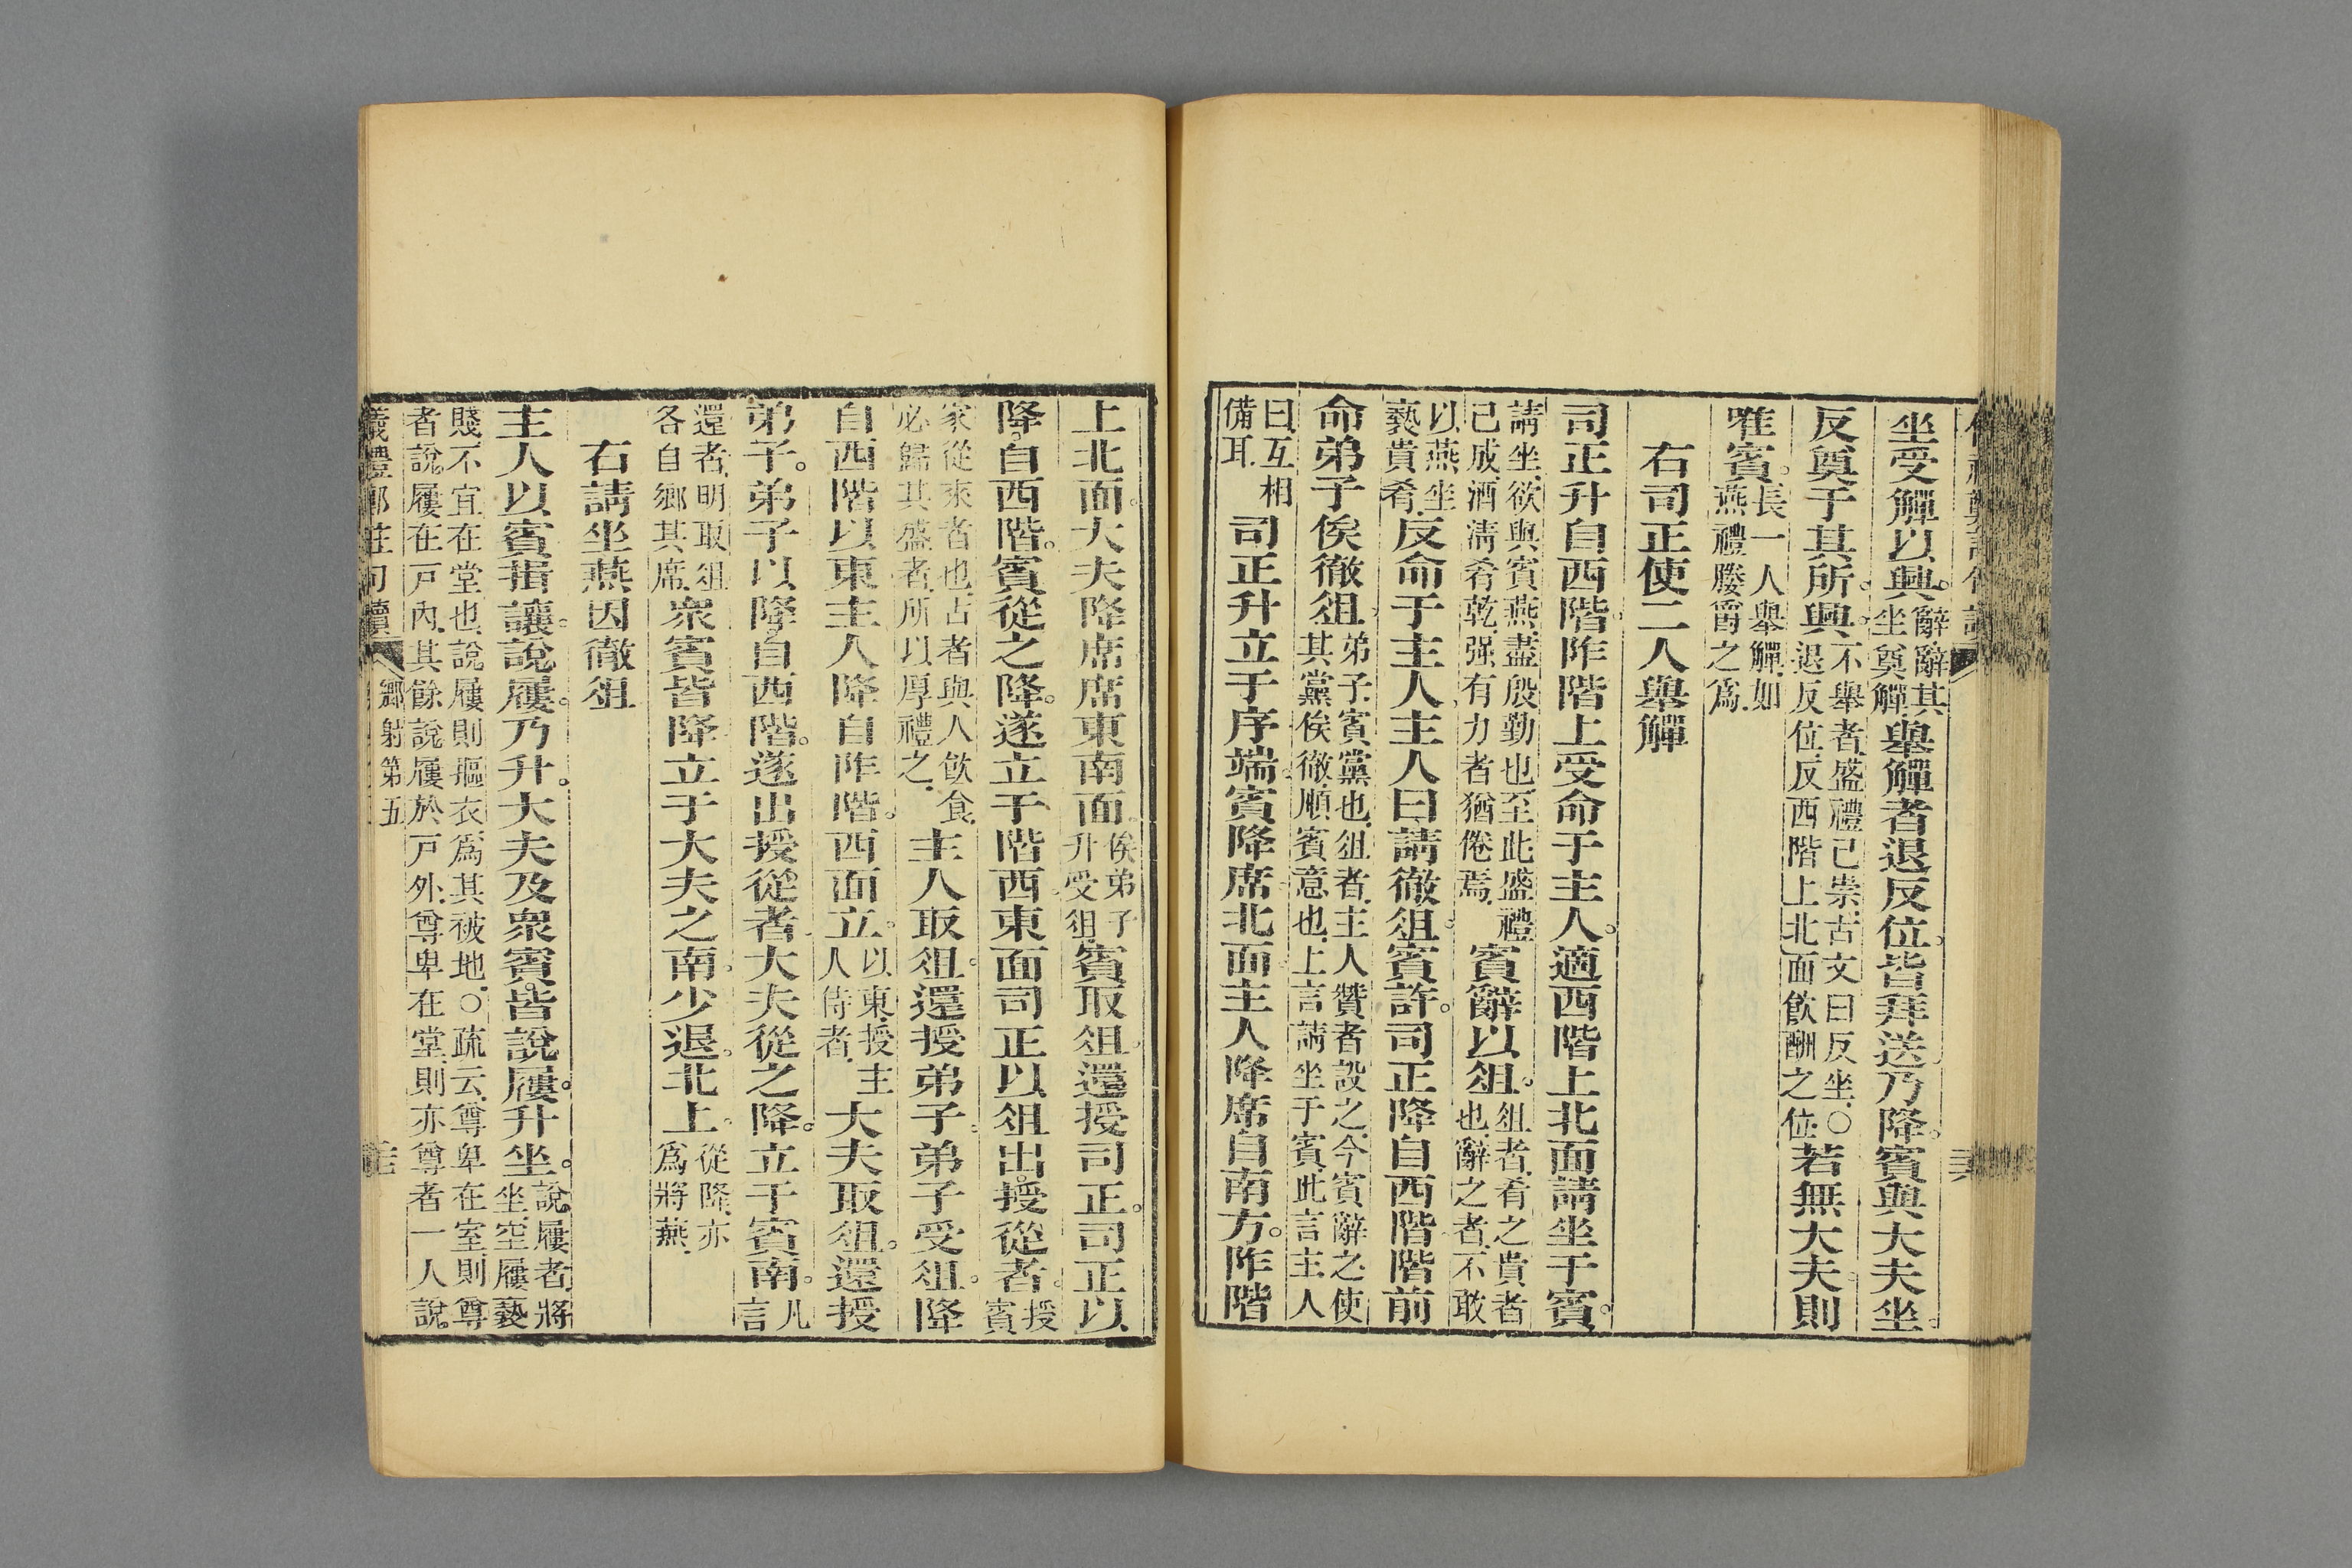 坐受觶以興辭辭其坐奠觶舉觶者退反位皆拜送乃降賓與大夫坐
反奠于其所興不舉者盛禮已崇古文曰反坐○退反位反西階上北面飲酬之位若無大夫則
唯賓長一人舉觶如燕禮媵爵之爲
右司正使二人舉觶
司正升自西階阼階上受命于主人適西階上北面請坐于賓
請坐欲與賓燕盡殷勤也至此盛禮已成酒淸肴乾强有力者猶倦焉賓辭以俎俎者肴之貴者也辭之者不敢
以燕坐褻貴肴反命于主人主人曰請徹俎賓許司正降自西階階前
命弟子俟徹俎弟子賓黨也俎者主人贊者設之今賓辭之使其黨俟徹順賓意也上言請坐于賓此言主人
曰互相備耳司正升立于序端賓降席北面主人降席自南方阼階
上北面大夫降席席東南面俟弟子升受俎賓取俎還授司正司正以
降自西階賓從之降遂立于階西東面司正以俎出授從者授賓
家從來者也古者與人飮食必歸其盛者所以厚禮之主人取俎還授弟子弟子受俎降
自西階以東主人降自阼階西面立以東授主人侍者大夫取俎還授
弟子弟子以降自西階遂出授從者大夫從之降立于賓南凡言
還者明取俎各自鄉其席衆賓皆降立于大夫之南少退北上從降亦爲將燕
右請坐燕因徹俎
主人以賓揖讓說屨乃升大夫及衆賓皆說屨升坐說屨者將坐空屨褻
賤不宜在堂也說屨則摳衣爲其被地○疏云尊卑在室則尊
者說屨在戸內其餘說屨於戸外尊卑在堂則亦尊者一人說
儀禮鄭註句讀 鄉射第五